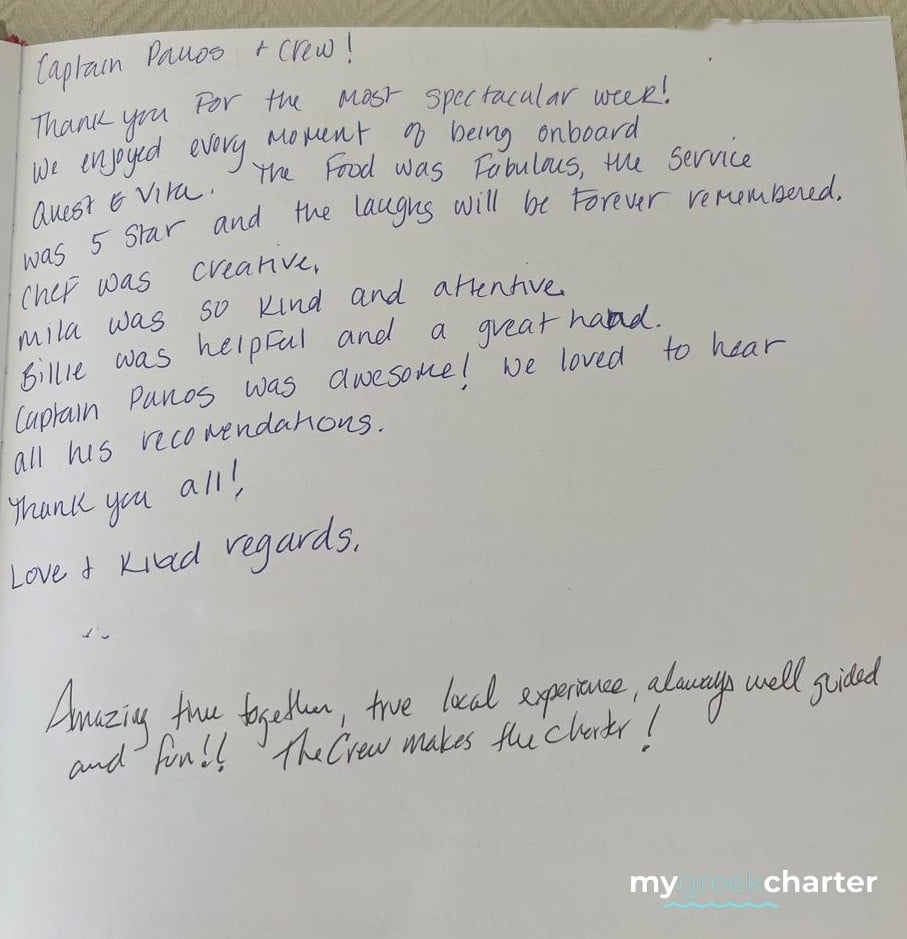 Captain Panos + Crew!
Thank you For the most spectacular week!
We enjoyed every moment of being onboard
Quest & Vita. The Food was Fabulous, the service
was 5 Star and the laughs will be Forever remembered.
Chef was creative.
Mila was so kind and attentive.
Billie was helpful and a great hand.
Captain Panos was awesome! We loved to hear
all his recomendations.
Thank you all!
Love + Kind regards.
Amazing time together, true local experience, always well guided
and fun!! The Crew makes the charter!
mygreekcharter